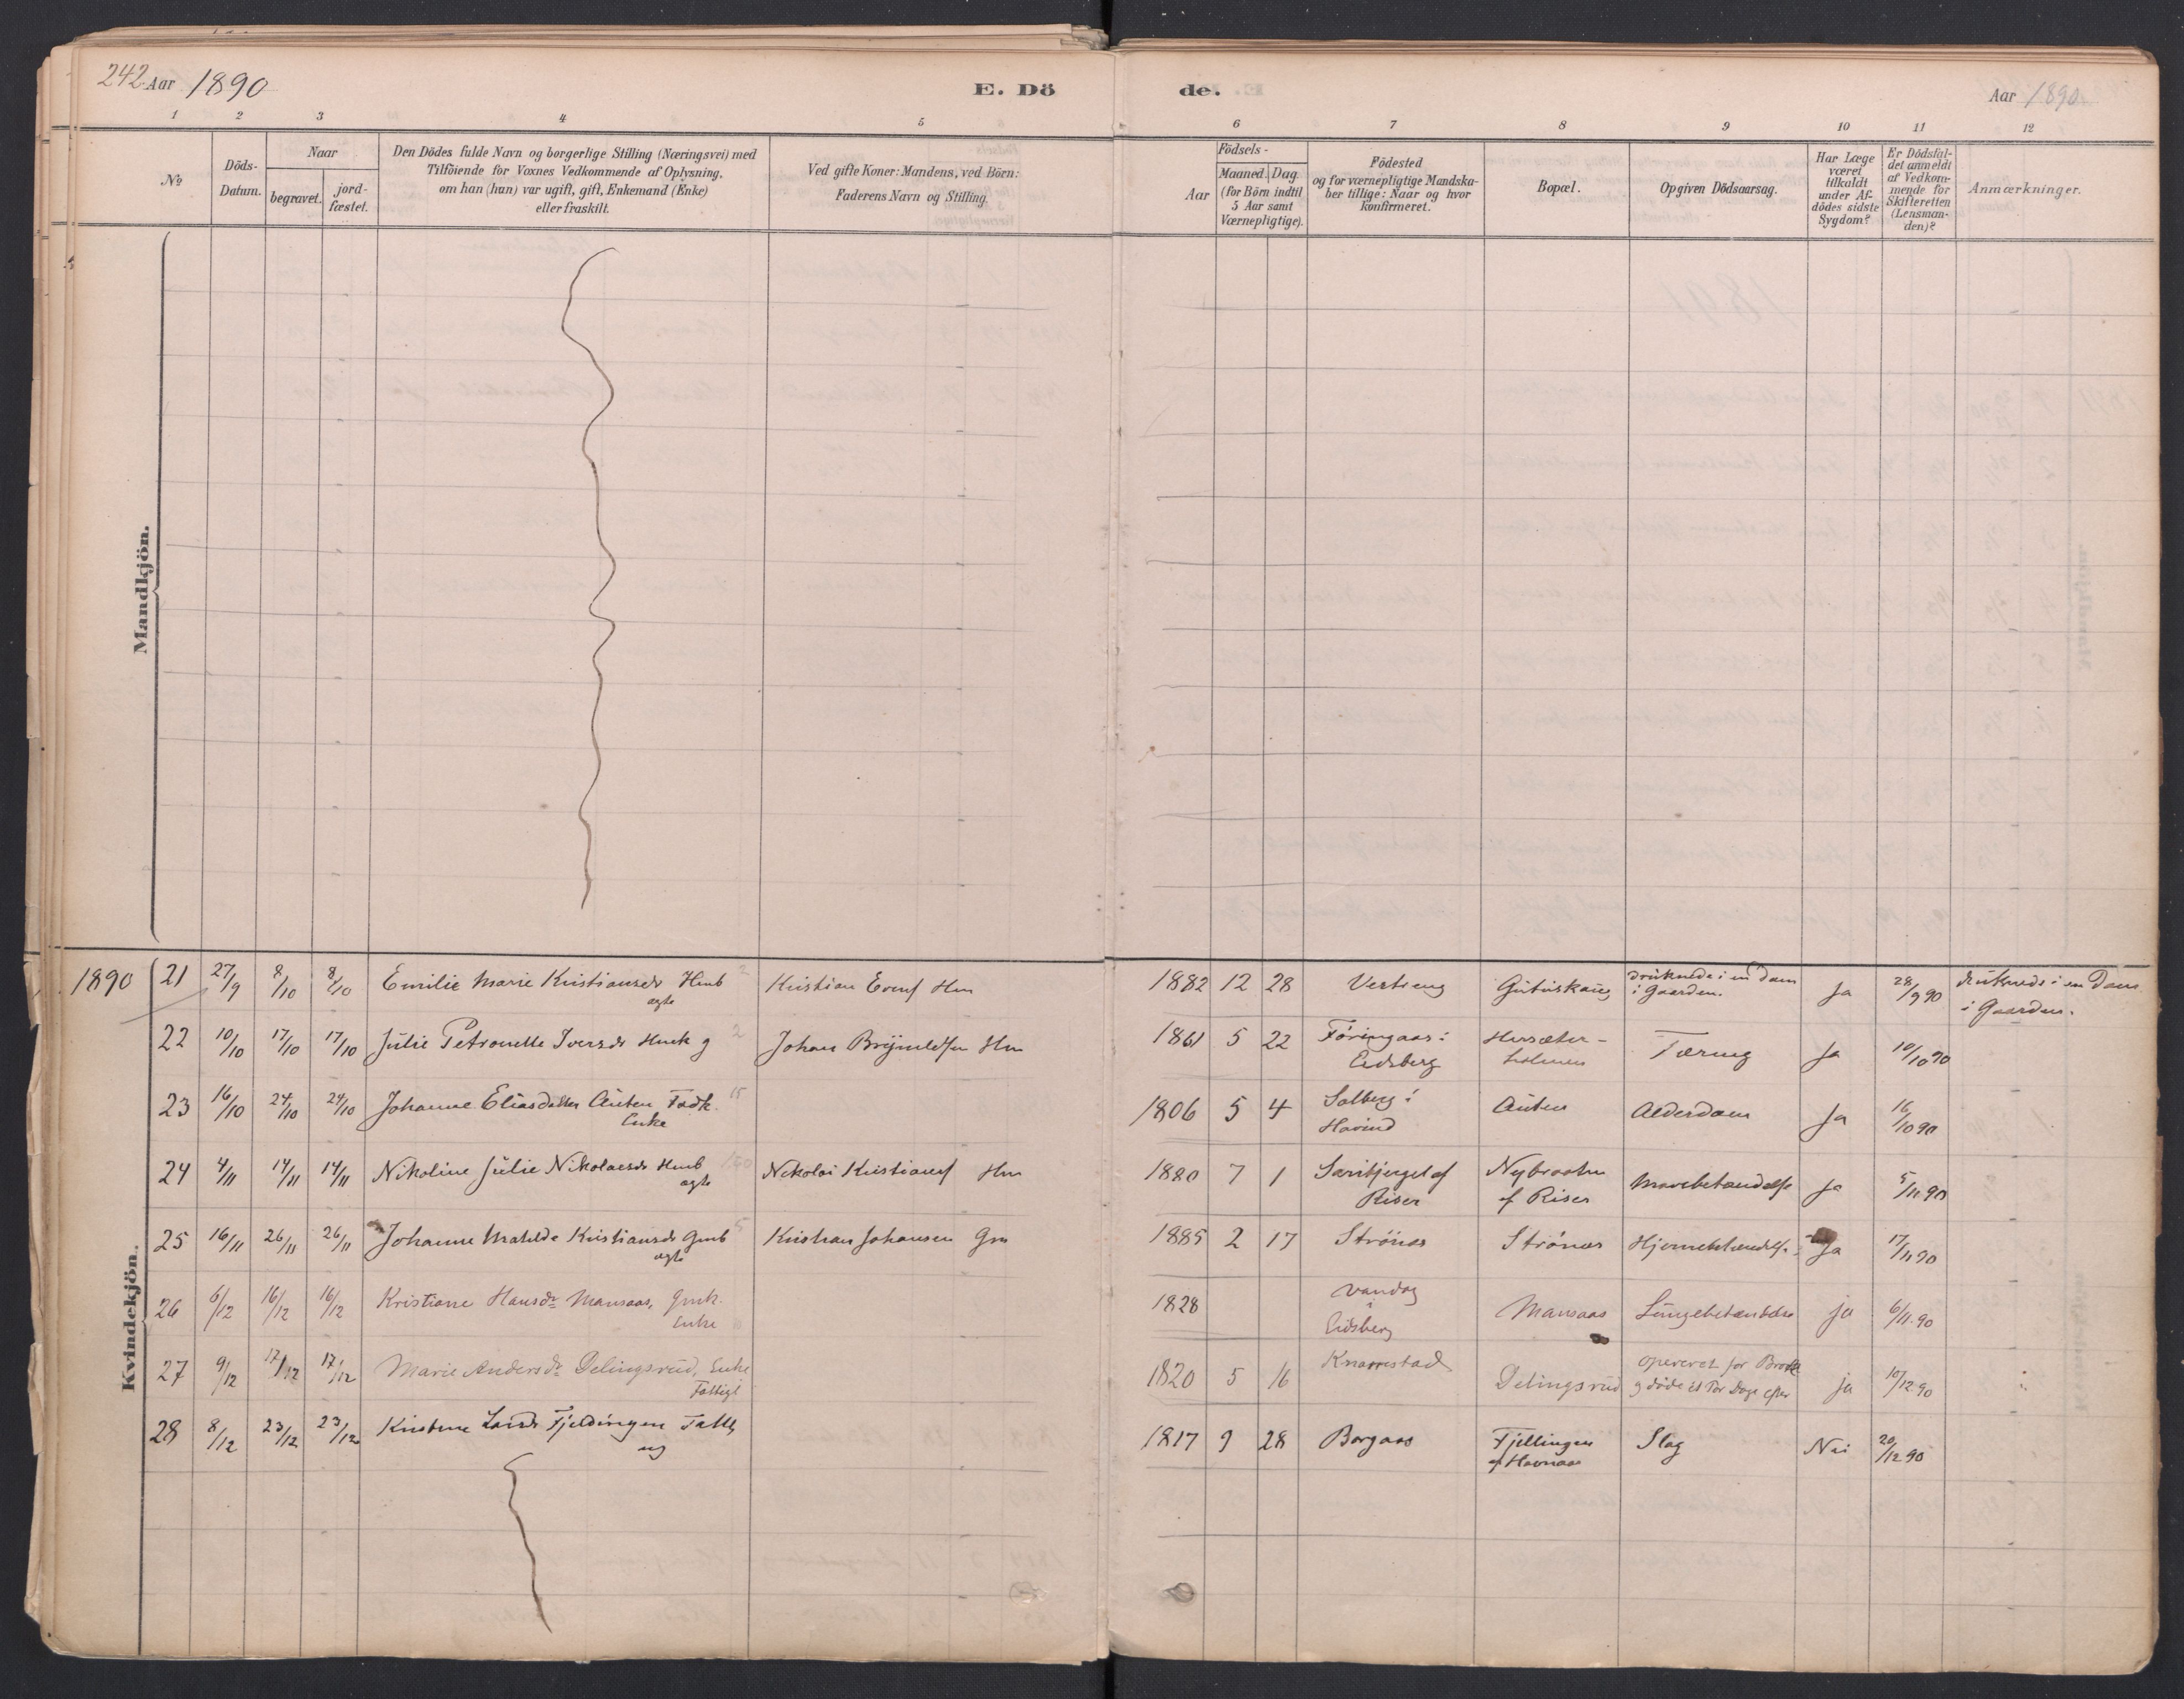 242 Aar 1890
E. Dö
de.
Aar 1890
1 2 3 4 5 6 7 8 9 10 11 12
No
Döds-
Datum.
Naar
begravet.
jord-
fæstet.
Den Dödes fulde Navn og borgerlige Stilling (Næringsvei) med
Tilföiende for Voxnes Vedkommende af Oplysning,
om han (hun) var ugift, gift, Enkemand (Enke)
eller fraskilt.
Ved gifte Koner: Mandens, ved Börn:
Faderens Navn og Stilling.
Födsels-
Aar
Maaned. Dag.
(for Börn indtil
5 Aar samt
Værnepligtige).
Födested
og for værnepligtige Mandska-
ber tillige: Naar og hvor
konfirmeret.
Bopæl.
Opgiven Dödsaarsag.
Har Læge
været
tilkaldt
under Af-
dödes sidste
Sygdom?
Er Dödsfal-
det anmeldt
af Vedkom-
mende for
Skifteretten
(Lensman-
den)?
Anmærkninger.
Mandkjön.
Kvindekjön.
1890 21 27/9 8/10 8/10 Emilie Marie Kristiansdr Hmb
ægte
Kristian Evens Hm 1882 12 28 Vestieng druknede i en Dam
i Gaarden. Ja 28/9 90 druknede i en Dam
i Gaarden.
22 10/10 17/10 17/10 Julie Petronelle Iversdr Hmk g Johan Brynildsen Hm 1861 5 22 Føringaas i
Eidsberg
Hersæter-
holmen
Tæring Ja 10/10 90
23 16/10 24/10 24/10 Johanne Eliasdatter Auten Fadk.
Enke
1806 5 4 Solberg i
Auten Alderdom Ja 16/10 90
24 4/11 14/11 14/11 Nikoline Julie Nikolaisdr Hmb
ægte
Nikolai Kristians Hm 1880 7 1
Riser
af Riser
Mavebetændelse Ja 5/11 90
25 16/11 26/11 26/11 Johanne Matilde Kristiansdr Gmb
ægte
Kristian Johansen Gm 1885 2 17 Strönes Strönes Hjernebetændelse Ja 17/11 90
26 6/12 16/12 16/12 Kristiane Hansdr Mansaas, Gmk.
Enke
1828 Vandog
i
Eidsberg
Mansaas Lungebetændelse ja 6/11.90
27 9/12 17/12 17/12 Marie Andersdr Delingsrud, Enke
Fattigl
1820 5 16 Knarrestad Delingsrud opereret for Brokk
og døde et Par Dage efter ja 10/12.90
28 8/12 23/12 23/12 Kristine Larsdr Fjeldingen Fattl
ug
1817 9 28 Borgaas Fjellingen
af Havnaas
Slag Nei 20/12 90